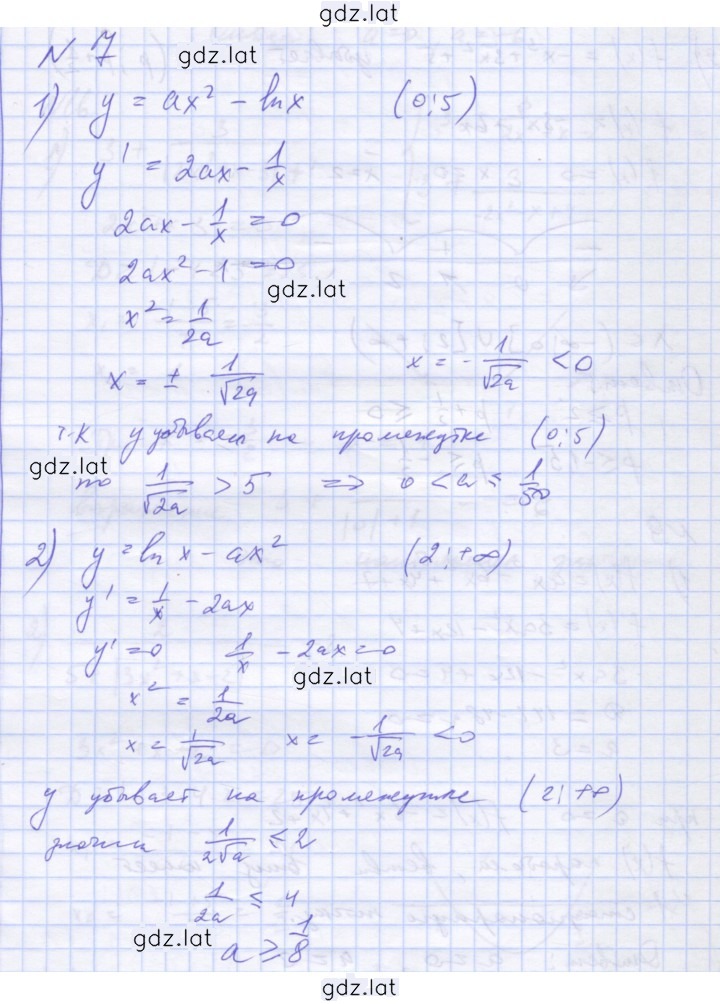 gdz.lat
N 7
gdz.lat
1) y = ax² - ln x (0;5)
y' = 2ax - 1/x
2ax - 1/x = 0
2ax² - 1 = 0
gdz.lat
x² = 1/2a
x = ± 1/√2a x = - 1/√2a < 0
т.к y убывает на промежутке (0;5)
gdz.lat
то 1/√2a > 5 ⇒ 0 < a ≤ 1/50
2) y = ln x - ax² (2;+∞)
y' = 1/x - 2ax
y' = 0 1/x - 2ax = 0
gdz.lat
x² = 1/2a
x = 1/√2a x = - 1/√2a < 0
y убывает на промежутке (2;+∞)
значит 1/2√a ≤ 2
1/2a ≤ 4
gdz.lat
a ≥ 1/8
gdz.lat